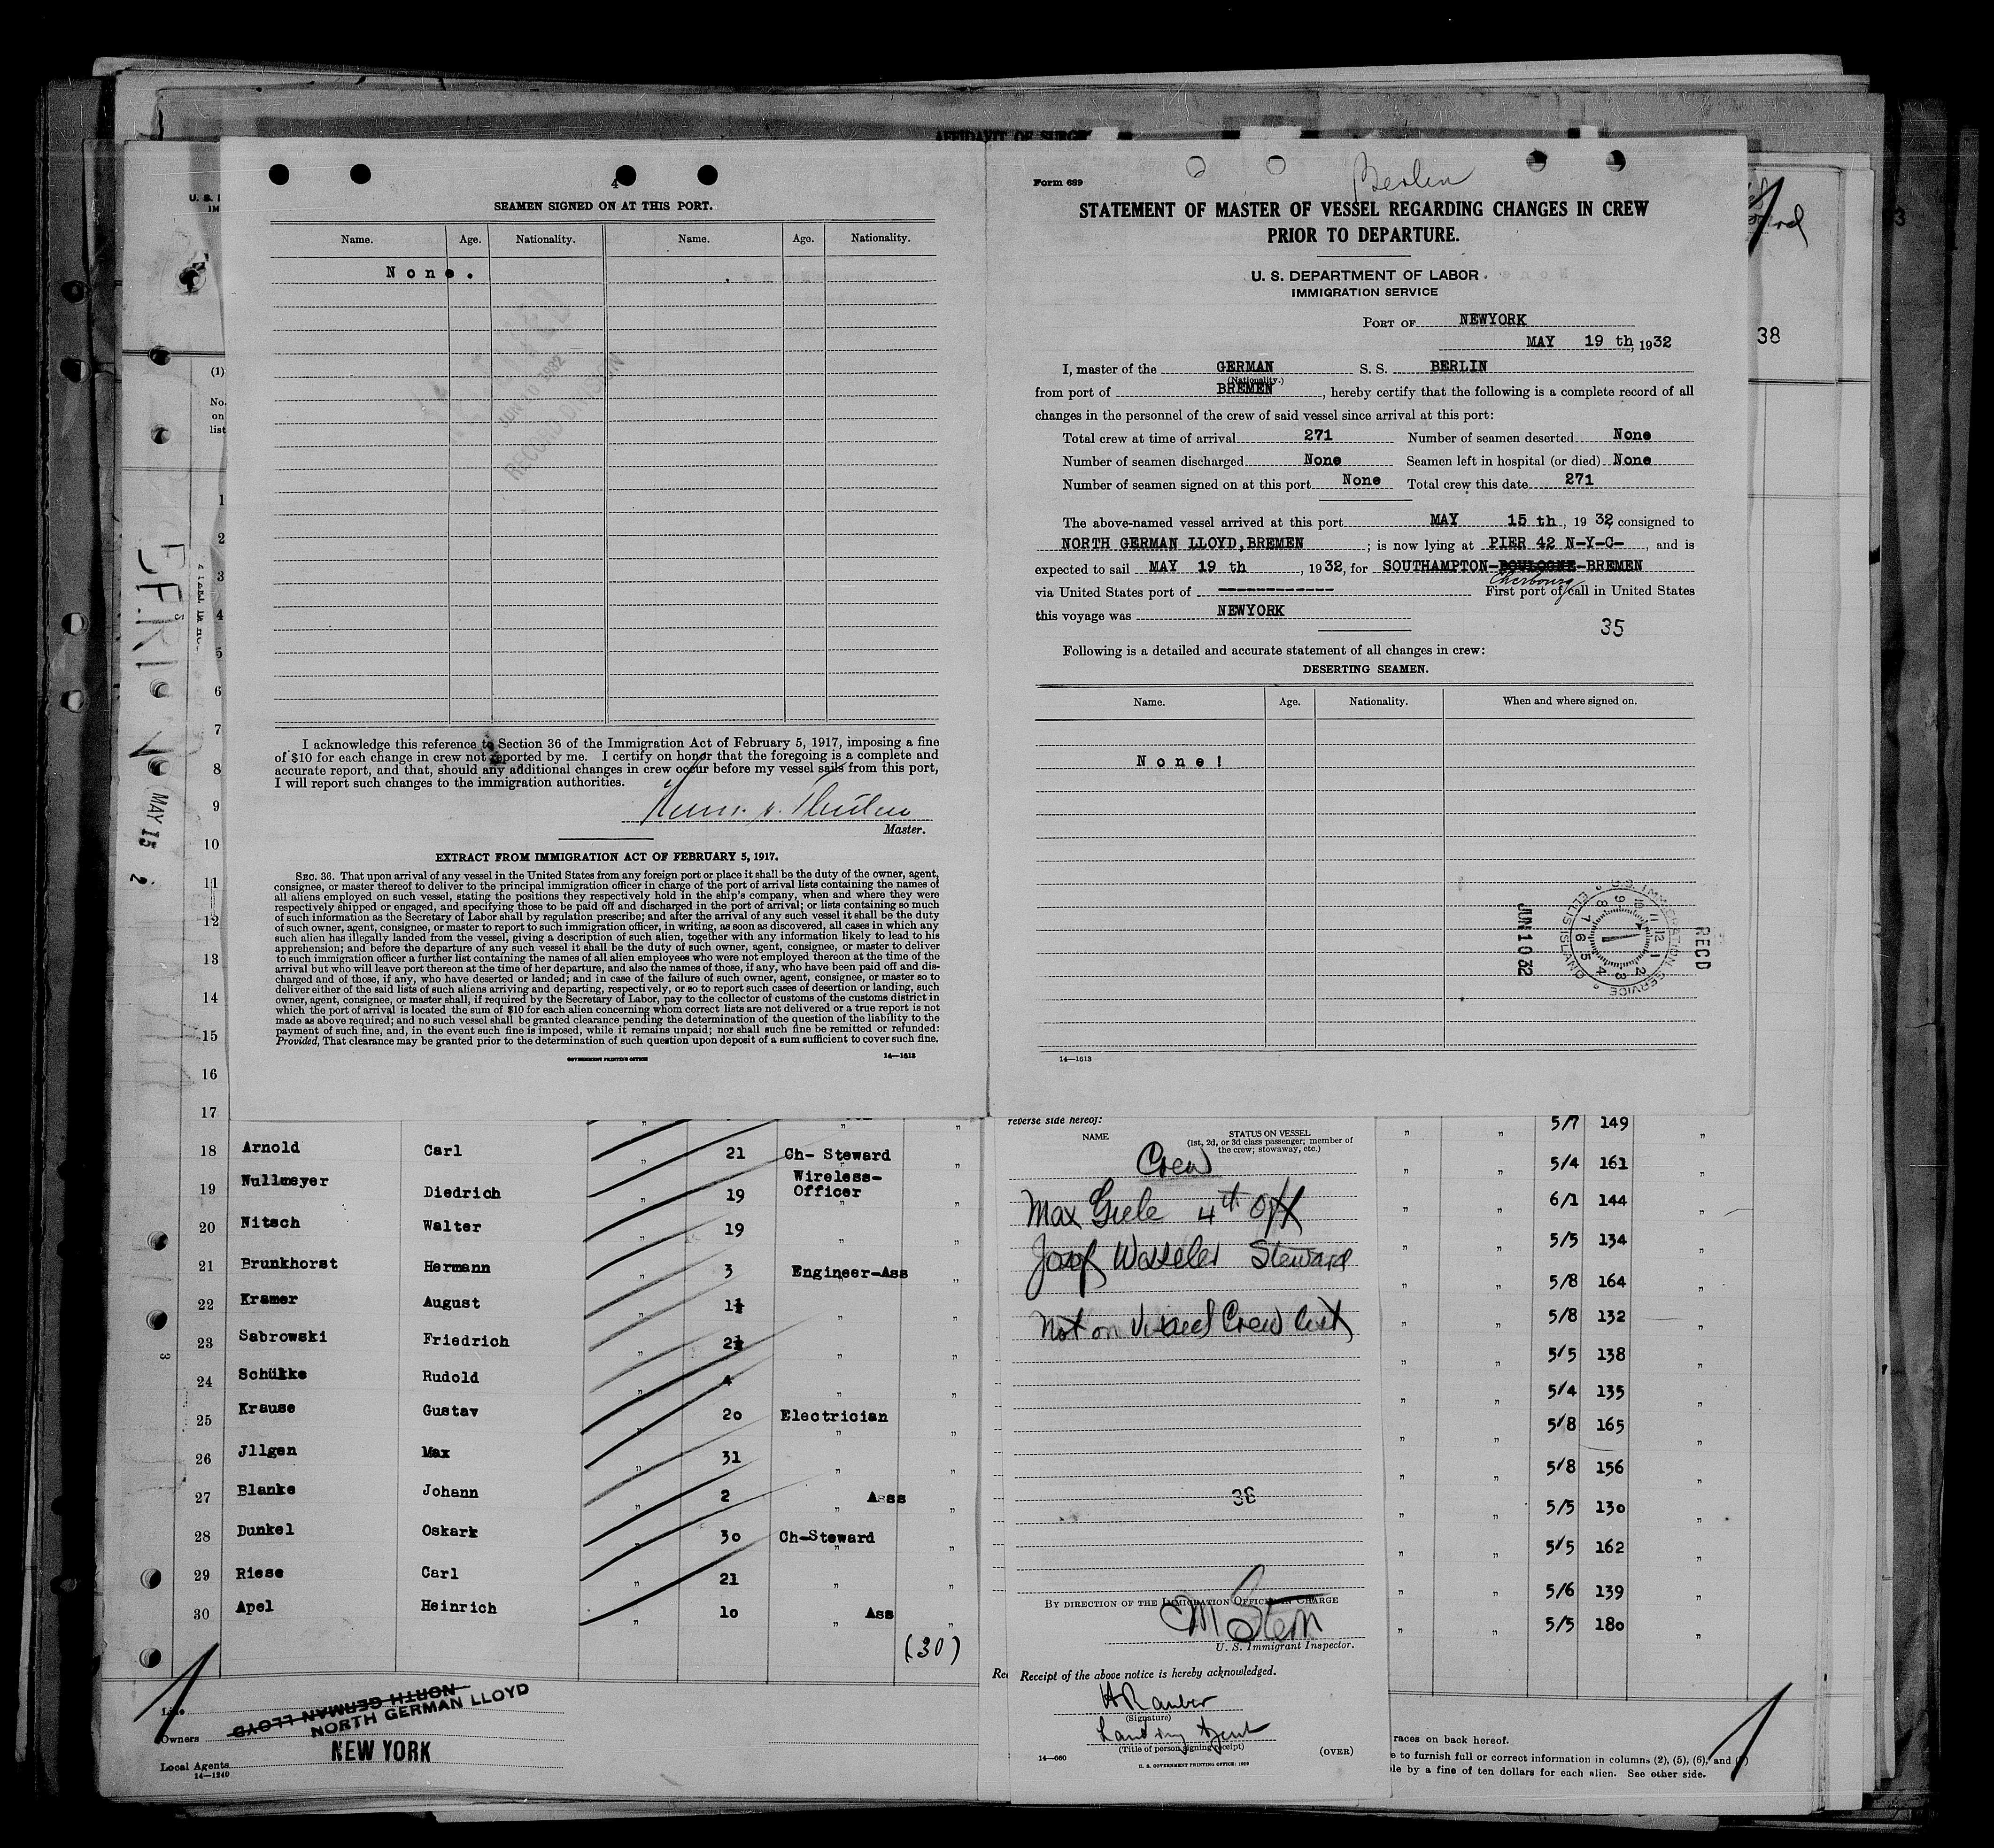 AFFIDAVIT OF SURGE
4
SEAMEN SIGNED ON AT THIS PORT.
Name. Age. Nationality. Name. Age. Nationality.
None.
JUN 10 1932
RECORD DIVISION
I acknowledge this reference to Section 36 of the Immigration Act of February 5, 1917, imposing a fine
of $10 for each change in crew not reported by me. I certify on honor that the foregoing is a complete and
accurate report, and that, should any additional changes in crew occur before my vessel sails from this port,
I will report such changes to the immigration authorities.
Master.
EXTRACT FROM IMMIGRATION ACT OF FEBRUARY 5, 1917.
SEC. 36. That upon arrival of any vessel in the United States from any foreign port or place it shall be the duty of the owner, agent,
consignee, or master thereof to deliver to the principal immigration officer in charge of the port of arrival lists containing the names of
all aliens employed on such vessel, stating the positions they respectively hold in the ship's company, when and where they were
respectively shipped or engaged, and specifying those to be paid off and discharged in the port of arrival; or lists containing so much
of such information as the Secretary of Labor shall by regulation prescribe; and after the arrival of any such vessel it shall be the duty
of such owner, agent, consignee, or master to report to such immigration officer, in writing, as soon as discovered, all cases in which any
such alien has illegally landed from the vessel, giving a description of such alien, together with any information likely to lead to his
apprehension; and before the departure of any such vessel it shall be the duty of such owner, agent, consignee, or master to deliver
to such immigration officer a further list containing the names of all alien employees who were not employed thereon at the time of the
arrival but who will leave port thereon at the time of her departure, and also the names of those, if any, who have been paid off and dis-
charged and of those, if any, who have deserted or landed; and in case of the failure of such owner, agent, consignee, or master so to
deliver either of the said lists of such aliens arriving and departing, respectively, or so to report such cases of desertion or landing, such
owner, agent, consignee, or master shall, if required by the Secretary of Labor, pay to the collector of customs of the customs district in
which the port of arrival is located the sum of $10 for each alien concerning whom correct lists are not delivered or a true report is not
made as above required; and no such vessel shall be granted clearance pending the determination of the question of the liability to the
payment of such fine, and, in the event such fine is imposed, while it remains unpaid; nor shall such fine be remitted or refunded:
Provided, That clearance may be granted prior to the determination of such question upon deposit of a sum sufficient to cover such fine.
GOVERNMENT PRINTING OFFICE 14—1613
Form 689
Berlin
STATEMENT OF MASTER OF VESSEL REGARDING CHANGES IN CREW
PRIOR TO DEPARTURE.
U. S. DEPARTMENT OF LABOR
IMMIGRATION SERVICE
PORT OF NEWYORK
MAY 19 th, 1932
I, master of the GERMAN S. S. BERLIN
(Nationality.)
from port of BREMEN, hereby certify that the following is a complete record of all
changes in the personnel of the crew of said vessel since arrival at this port:
Total crew at time of arrival 271 Number of seamen deserted None
Number of seamen discharged None Seamen left in hospital (or died) None
Number of seamen signed on at this port None Total crew this date 271
The above-named vessel arrived at this port MAY 15 th, 1932 consigned to
NORTH GERMAN LLOYD, BREMEN; is now lying at PIER 42 N-Y-C-, and is
expected to sail MAY 19 th, 1932, for SOUTHAMPTON-BOULOGNE-BREMEN
Cherbourg
via United States port of ------------ First port of call in United States
this voyage was NEWYORK
35
Following is a detailed and accurate statement of all changes in crew:
DESERTING SEAMEN.
Name. Age. Nationality. When and where signed on.
None!
RECD
U.S. IMMIGRATION SERVICE
ELLIS ISLAND
JUN 10 32
14—1613
38
3
U. S.
IM
(1)
No.
on
list
MAY 15
1
2
3
4
5
6
7
8
9
10
11
12
13
14
15
16
17 " " " " 5/7 149 "
18 Arnold Carl " 21 Ch- Steward " " " 5/4 161 "
19 Nullmeyer Diedrich " 19 Wireless-Officer " " " 6/1 144 "
20 Nitsch Walter " 19 " " " " 5/5 134 "
21 Brunkhorst Hermann " 3 Engineer-Ass " " " 5/8 164 "
22 Kramer August " 1½ " " " " 5/8 132 "
23 Sabrowski Friedrich " 2½ " " " " 5/5 138 "
24 Schükke Rudold " 4 " " " " 5/4 135 "
25 Krause Gustav " 20 Electrician " " " 5/8 165 "
26 Jllgen Max " 31 " " " " 5/8 156 "
27 Blanke Johann " 2 " Asss " " " 5/5 130 "
28 Dunkel Oskark " 30 Ch-Steward " " " 5/5 162 "
29 Riese Carl " 21 " " " " 5/6 139 "
30 Apel Heinrich " 10 " Ass " " " 5/5 180 "
(30)
Line
NORTH GERMAN LLOYD
Owners NORTH GERMAN LLOYD
NEW YORK
Local Agents
14—1240
reverse side hereof:
NAME STATUS ON VESSEL
(1st, 2d, or 3d class passenger; member of
the crew; stowaway, etc.)
Crew
Max Giele 4th Off
Josef Wasseler Steward
Not on Visaed Crew List
38
BY DIRECTION OF THE IMMIGRATION OFFICER IN CHARGE
M Stern
U. S. Immigrant Inspector.
Receipt of the above notice is hereby acknowledged.
H Rauber
(Signature)
Landing Agent
(Title of person signing receipt)
14—660 (OVER)
U. S. GOVERNMENT PRINTING OFFICE: 1929
races on back hereof.
e to furnish full or correct information in columns (2), (5), (6), and
le by a fine of ten dollars for each alien. See other side.